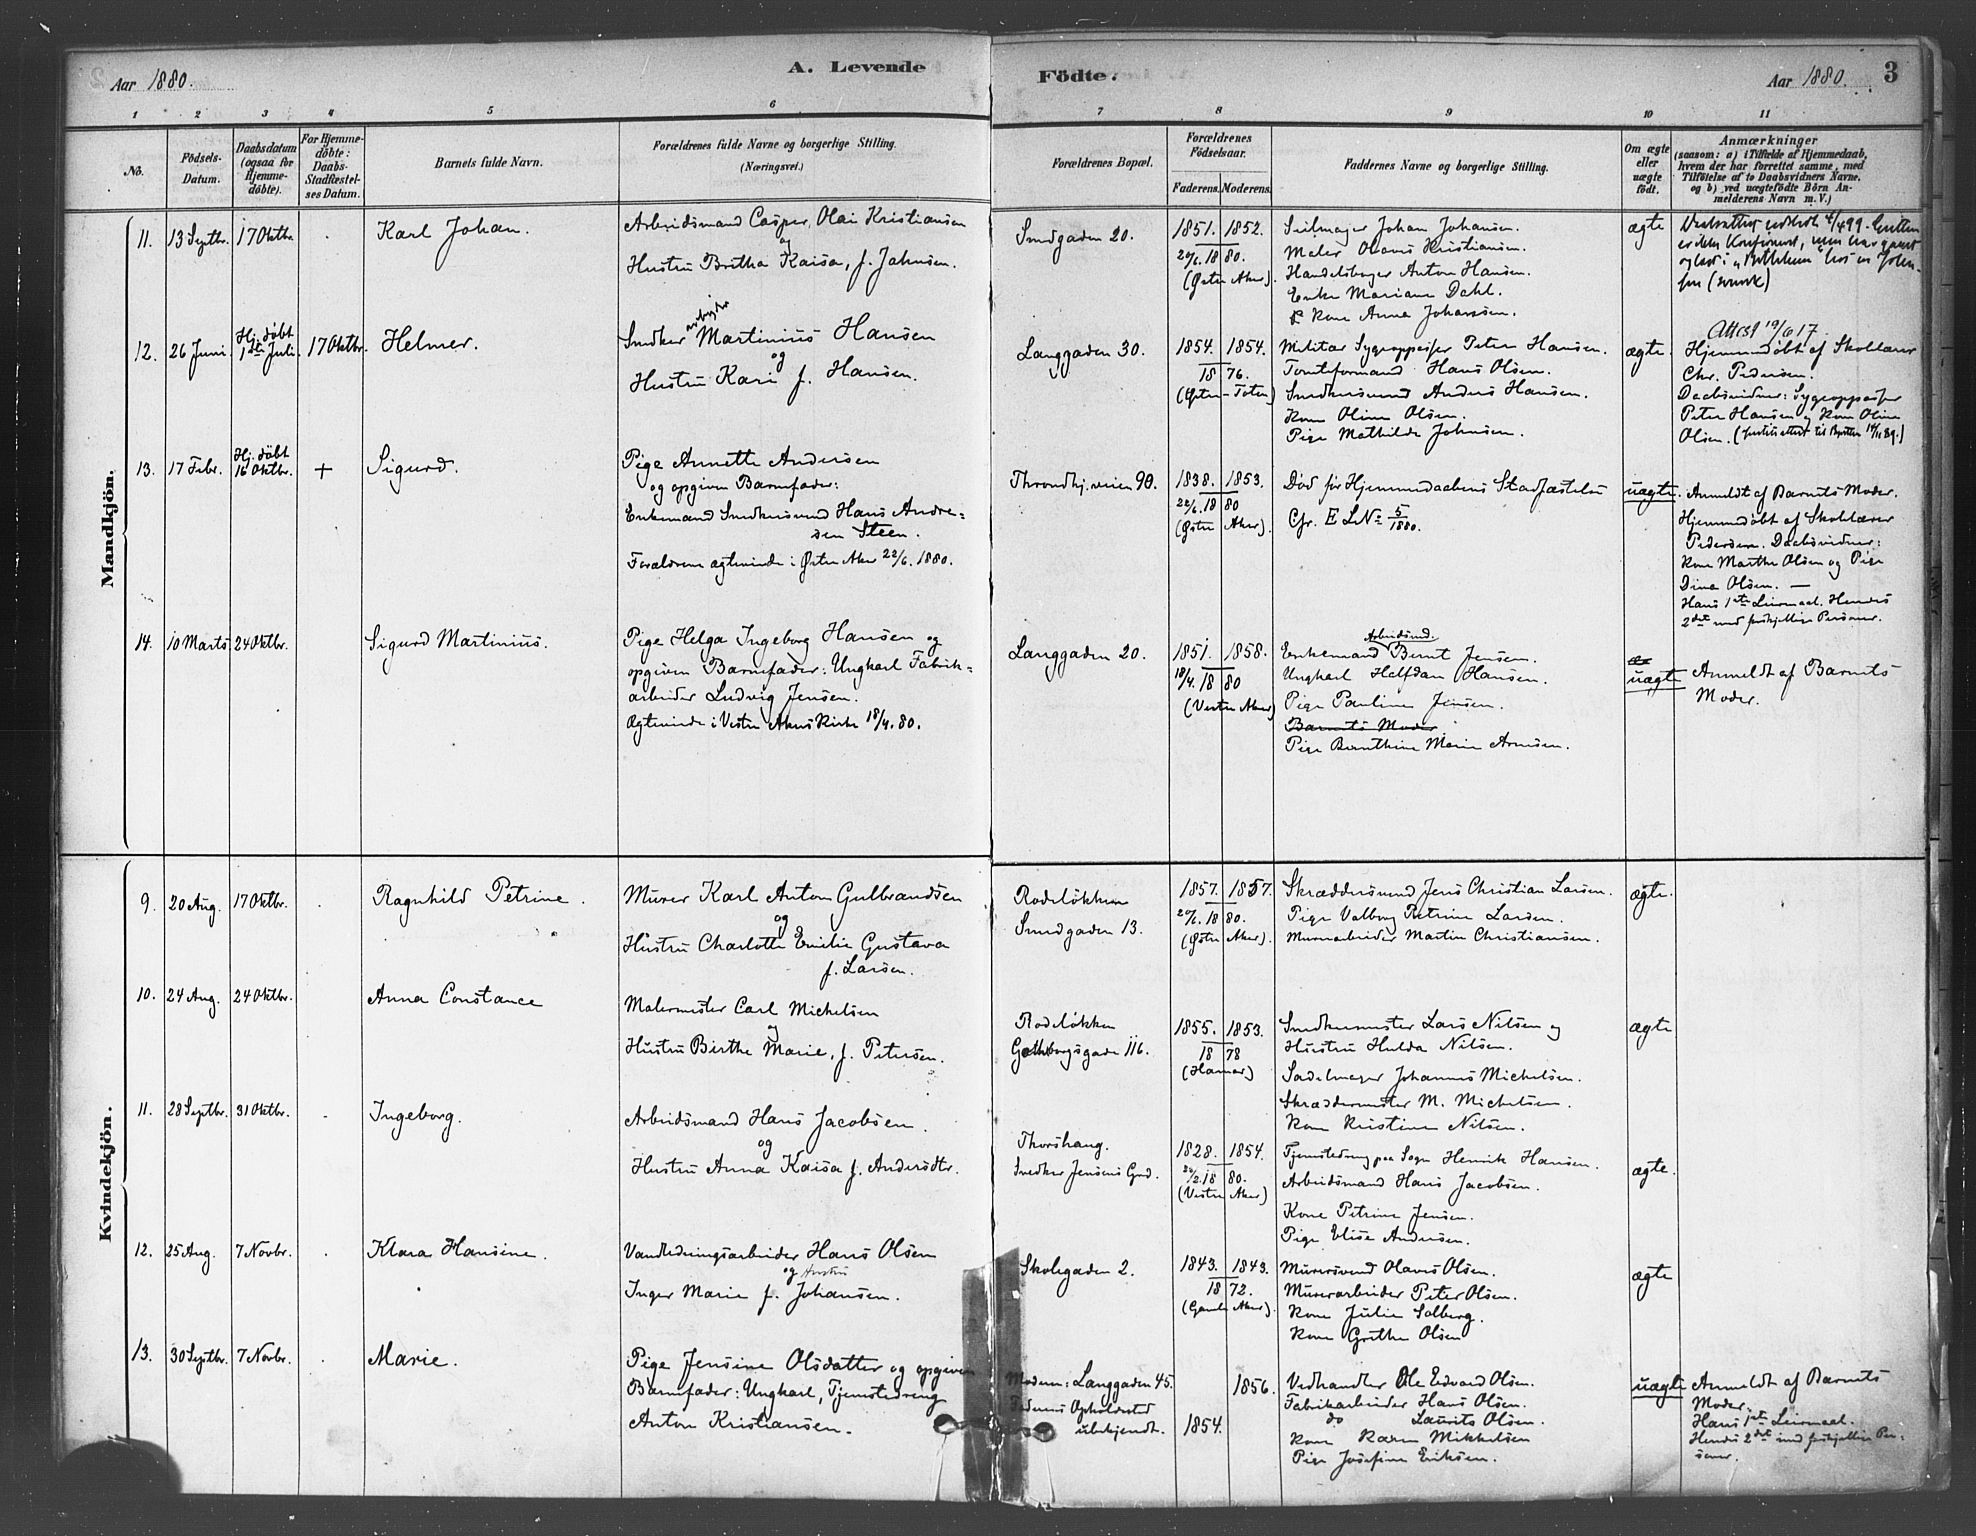 Aar 1880.
A. Levende
Födte.
Aar 1880.
3
1 2 3 4 5 6 7 8 9 10 11
No.
Födsels-
Datum.
Daabsdatum
(ogsaa for
Hjemme-
döbte).
For Hjemme-
döbte:
Daabs-
Stadfæstel-
ses Datum.
Barnets fulde Navn.
Forældrenes fulde Navne og borgerlige Stilling.
(Næringsvei.)
Forældrenes Bopæl.
Forældrenes
Födselsaar.
Faderens. Moderens.
Faddernes Navne og borgerlige Stilling.
Om ægte
eller
uægte
födt.
Anmærkninger
(saasom: a) i Tilfælde af Hjemmedaab,
hvem der har forrettet samme, med
Tilföielse af to Daabsvidners Navne,
og b) ved uægtefödte Börn An-
melderens Navn m. V.)
Mandkjön.
11. 13 Septbr. 17 Oktbr. Karl Johan.
Arbeidsmand Casper Olai Kristiansen
og
Hustru Britha Kaisa, f. Jahnsen.
Smedgaden 20.
1851. 1852.
20/6. 18 80.
(Østre Aker)
Seilmager Johan Johansen.
Maler Olavus Kristiansen.
Handelsborger Anton Hansen.
Enke Mariane Dahl.
Kone Anna Johansen.
ægte
12. 26 Juni Hj. döbt
1ste Juli 17 Oktbr. Helmer.
Snedker arbeider Martinius Hansen
og
Hustru Kari f. Hansen.
Langgaden 30.
1854. 1854.
18 76.
(Østre-Toten)
Militær Sygeopasser Peter Hansen.
Tomteformand Hans Olsen.
Snedkersvend Anders Hansen.
Kone Oline Olsen.
Pige Mathilde Johnsen.
ægte.
Attest 19/6 17.
Hjemmedøbt af Skolelærer
Chr. Pedersen.
Daabsvidner: Sygeopasser
Peter Hansen og Kone Oline
Olsen.
13. 17 Febr. Hj. döbt
16 Oktbr. + Sigurd.
Pige Annette Andersen
og opgiven Barnefader:
Enkemand Snedkersvend Hans Andre-
sen Steen.
Forældrene ægteviede i Østre Aker 22/6. 1880.
Throndhj. veien 90.
1838. 1853.
22/6. 18 80
(Østre Aker).
Død før Hjemmedaabens Stadfæstelse
Cfr. E L No 5/1880.
uægte.
Anmeldt af Barnets Moder.
Hjemmedøbt af Skolelærer
Pedersen. Daabsvidner:
Kone Marthe Olsen og Pige
Dina Olsen. —
Hans 1ste Leiermaal. Hendes
2det med forskjellige Personer.
14. 10 Marts 24 Oktbr. Sigurd Martinius.
Pige Helga Ingeborg Hansen og
opgiven Barnefader: Ungkarl Fabrik-
arbeider Ludvig Jensen.
Ægteviede i Vestre Akers Kirke 18/4. 80.
Langgaden 20.
1851. 1858.
18/4. 18 80
(Vestre Aker)
Arbeidsmd.
Enkemand Bernt Jensen.
Ungkarl Halfdan Hansen.
Pige Pauline Jensen.
Barnets Moder
Pige Bernthine Marie Arnesen.
uægte
Anmeldt af Barnets
Moder.
Kvindekjön.
9. 20 Aug. 17 Oktbr. Ragnhild Petrine.
Murer Karl Anton Gulbrandsen
og
Hustru Charlotte Emilie Gustava
f. Larsen.
Rodeløkken
Smedgaden 13.
1857. 1857.
20/6. 18 80.
(Østre Aker).
Skræddersvend Jens Christian Larsen.
Pige Valborg Petrine Larsen.
Murerarbeider Martin Christiansen.
ægte.
10. 24 Aug. 24 Oktbr. Anna Constance
Malermester Carl Michelsen
og
Hustru Birthe Marie, f. Petersen.
Rodeløkken
Gøthborgsgade 116.
1855. 1853.
18 78
(Hamar)
Snedkermester Lars Nilsen og
Hustru Hulda Nilsen.
Sadelmager Johannes Michelsen.
Skræddermester M. Michelsen.
Kone Kristine Nilsen.
ægte
11. 28 Septbr. 31 Oktbr. Ingeborg.
Arbeidsmand Hans Jacobsen.
og
Hustru Anna Kaisa f. Andersdtr.
Thorshaug.
Snedker Jensens Grd.
1828. 1854.
18 80.
(Vestre Aker)
Tjenestedreng paa Sagn Henrik Hansen.
Arbeidsmand Hans Jacobsen.
Kone Petrine Jensen.
Pige Elise Andersen.
ægte.
12. 25 Aug. 7 Novbr. Klara Hansine.
Vandledningsarbeider Hans Olsen
og Hustru
Inger Marie f. Johansen.
Skolegaden 2.
1843. 1843.
18 72.
(Gamle Aker).
Murersvend Olaves Olsen.
Murerarbeider Peter Olsen.
Kone Julie Solberg.
Kone Grethe Olsen
ægte
13. 30 Septbr. 7 Novbr. Marie.
Pige Jensine Olsdatter og opgiven
Barnefader: Ungkarl, Tjenestedreng
Anton Kristiansen.
Moderen: Langgaden 45.
Faderens Opholdssted
ubekjendt.
1856.
1854.
Vedhandler Ole Edvard Olsen.
Fabrikarbeider Hans Olsen.
do Laurits Olsen.
Kone Karen Mikkelsen
Pige Josefine Eriksen.
uægte
Anmeldt af Barnets
Moder.
Hans 1ste Leiermaal.
Hendes 2det med forskjellige Per-
soner.